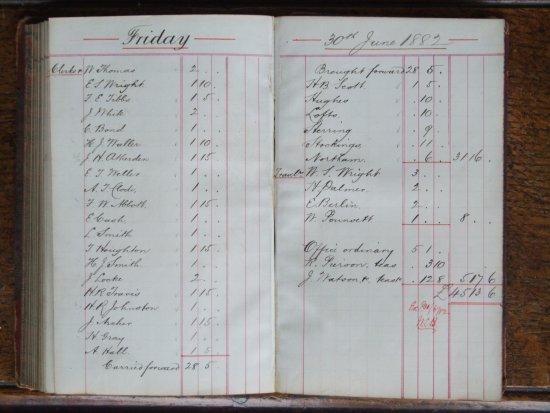 Friday
Clerks W Thomas 2 . .
E S Wright 1 10 .
T. E Tibbs 1 5 .
J White 2 . .
C Bond 1 . .
H J Waller 1 10 .
J H Akerden 1 15
E T Welles 1 . .
A. T. 1 . .
F W Abbott 1 15
E Cash 1 . .
L Smith 1 . .
T Houghton 1 15
H J Smith 1 . .
J Locke 2 . .
H R Travis 1 15
H R Johnston 1 . .
J Archer 1 15
H Gray 1 . .
A Hall 1 5
Carried forward 28 5
30th June 1882
Brought forward 28 5 .
H B Scott 1 5 .
Hughes . 10 .
Lofts . 10 .
Herring . 9 .
Stockings . 11 .
Northam . 6 31 16 .
W. S. Wright 3 . .
H Palmer 2 . .
E Berlin 2 . .
W Pounsett 1 . . 8 . .
Office ordinary 5 1 .
Pierson, teas . 3 10
J Watson . 12 8 5 17 6
£ 45 13 6